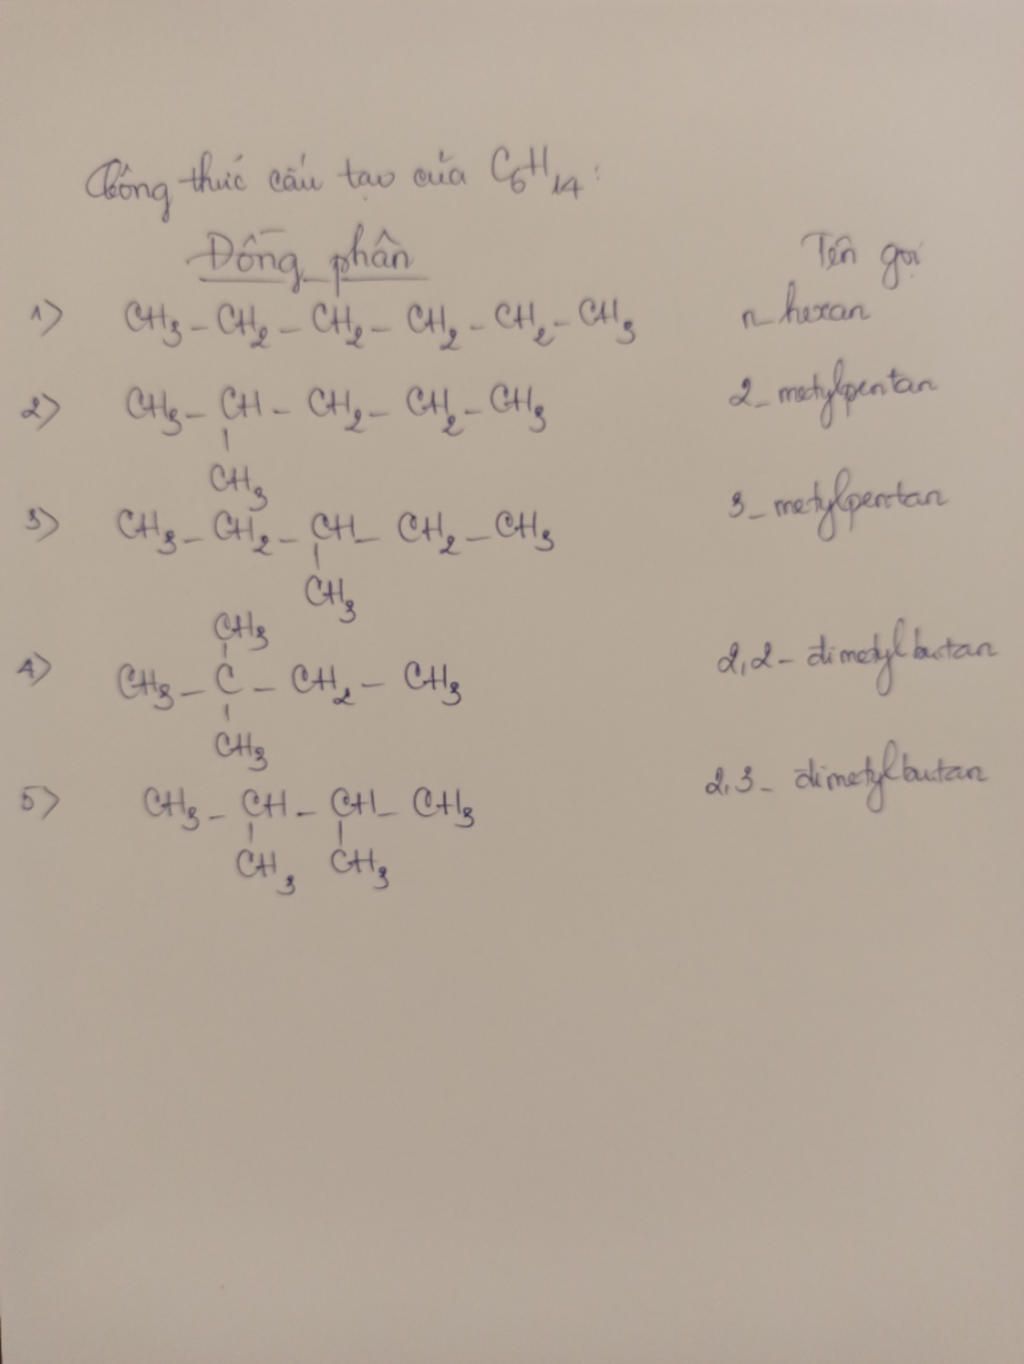 Công thức cấu tạo của C₆H₁₄:
Đồng phân Tên gọi
1) CH₃ – CH₂ – CH₂ – CH₂ – CH₂ – CH₃ n – hexan
2) CH₃ – CH – CH₂ – CH₂ – CH₃ 2 – metylpentan
CH₃
3) CH₃ – CH₂ – CH – CH₂ – CH₃ 3 – metylpentan
CH₃
CH₃
4) CH₃ – C – CH₂ – CH₃ 2,2 – đimetylbutan
CH₃
5) CH₃ – CH – CH – CH₃ 2,3 – đimetylbutan
CH₃ CH₃